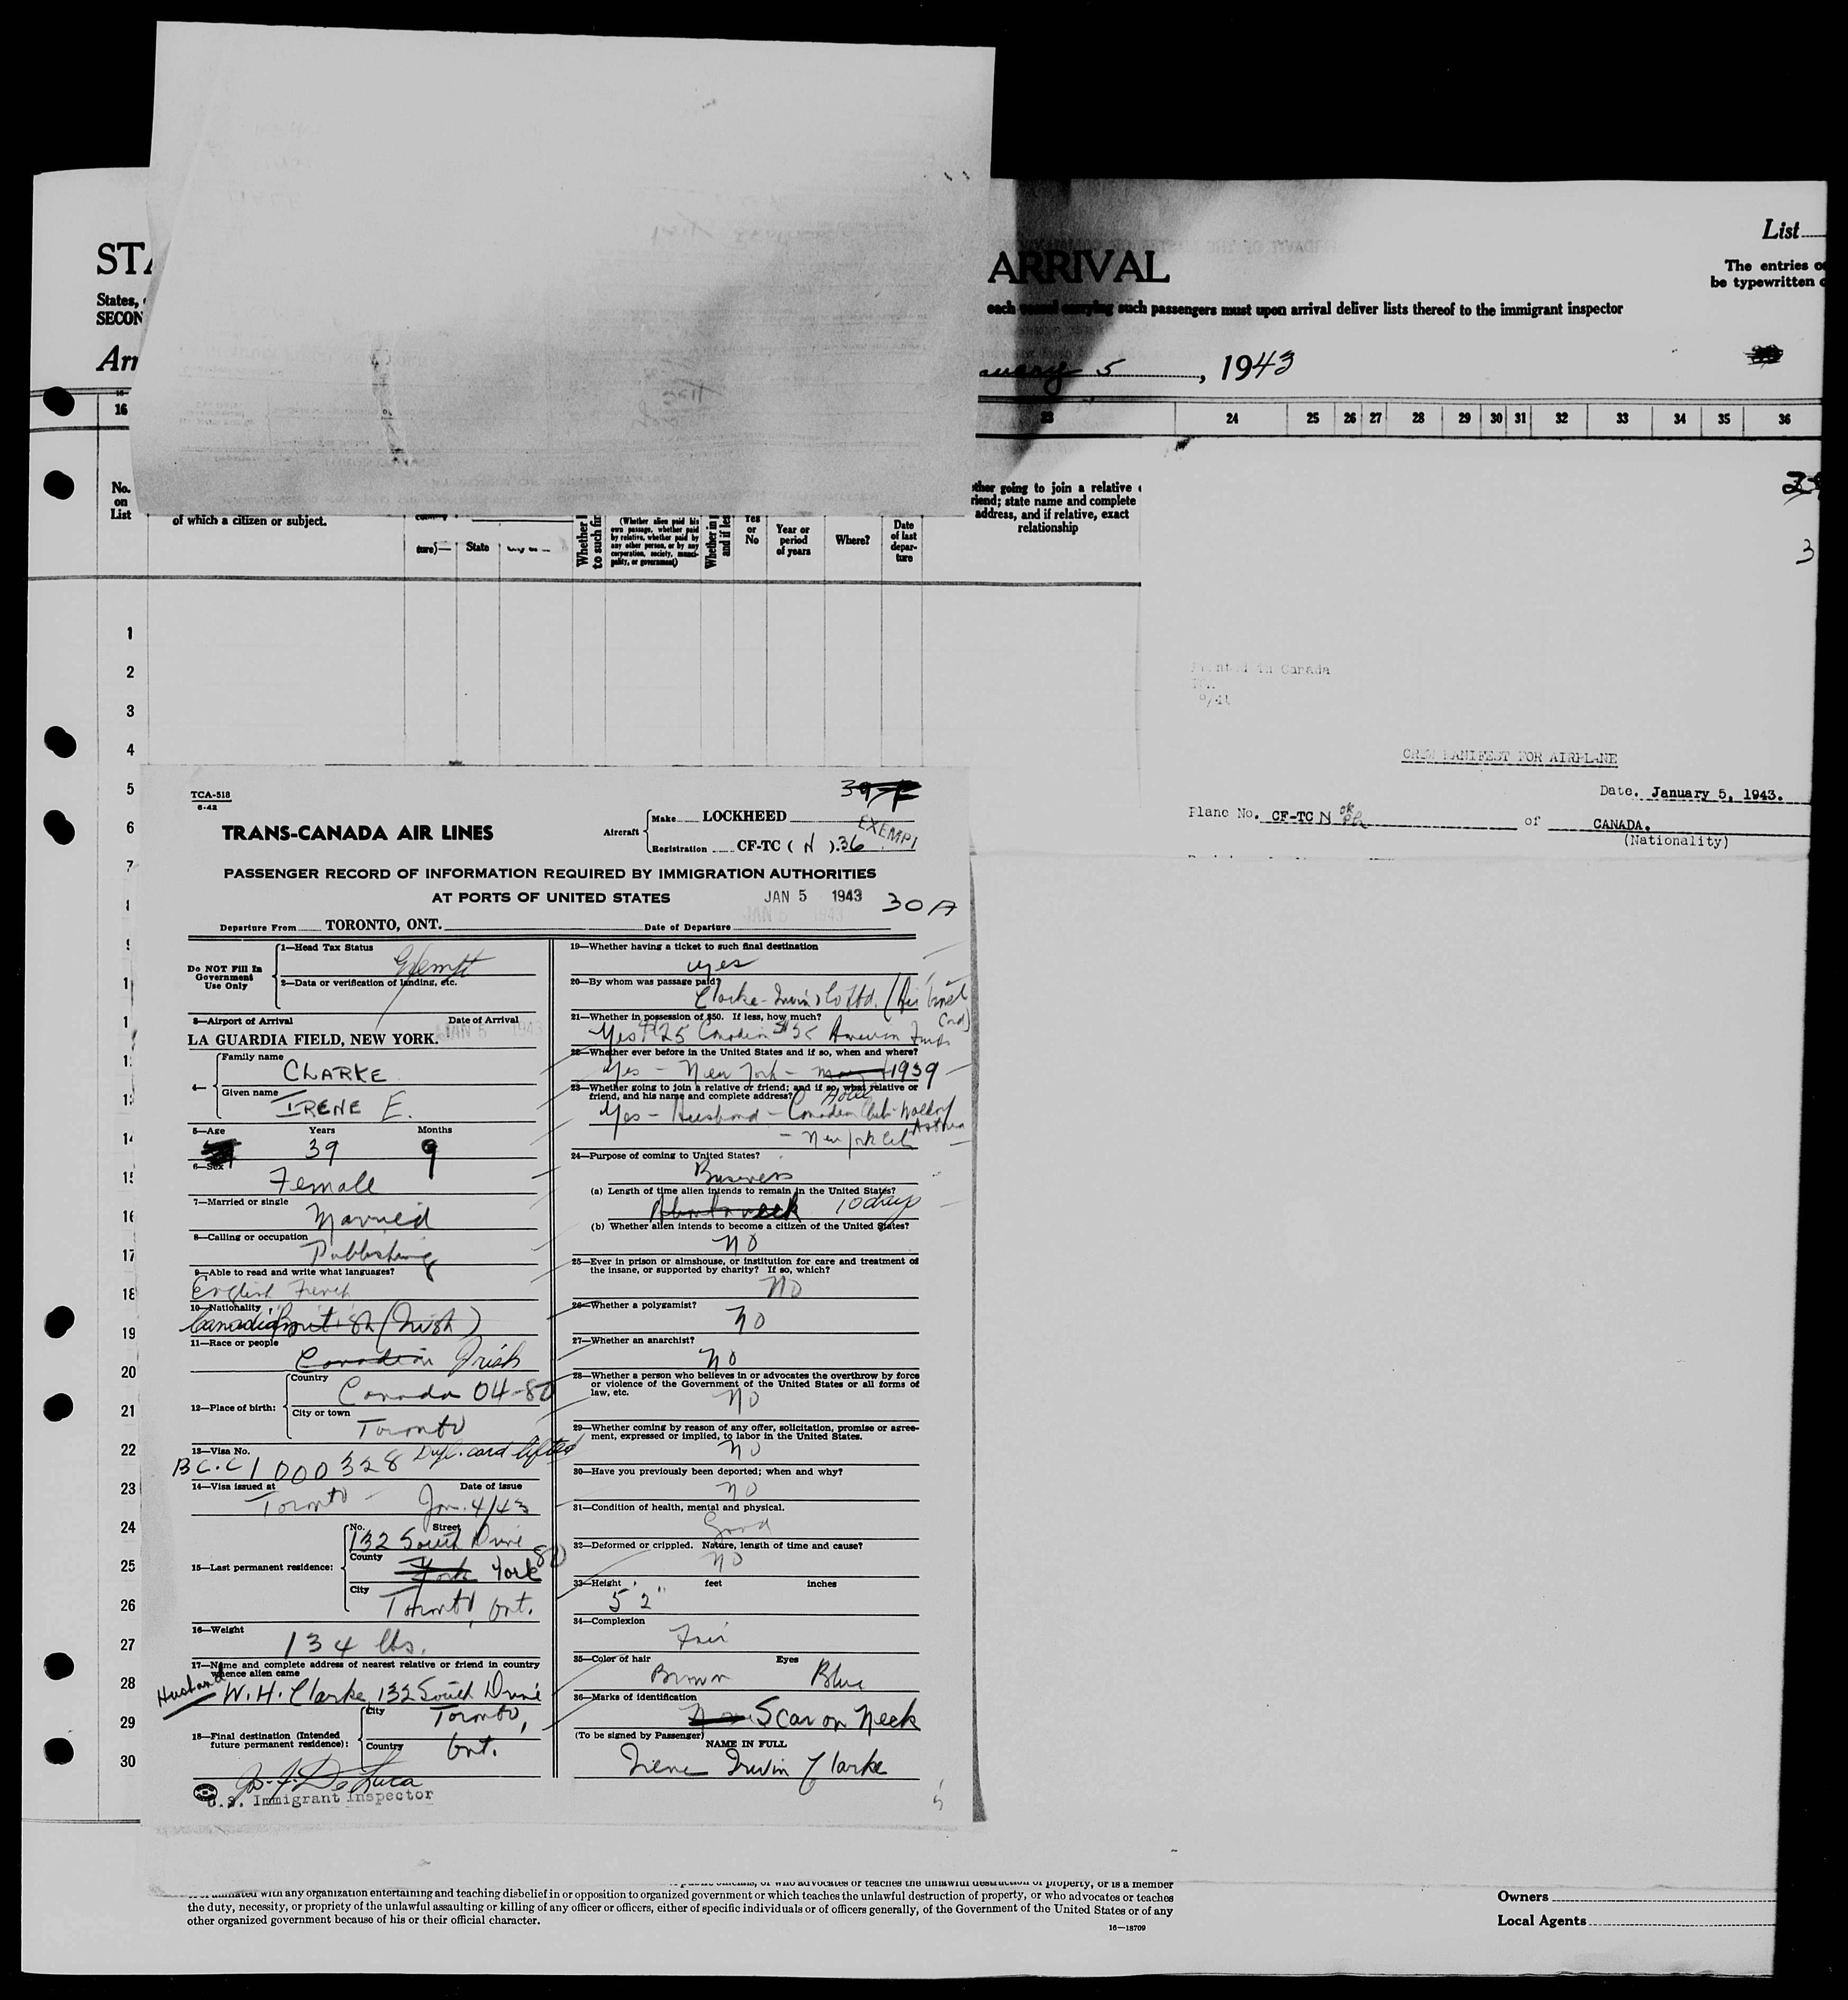 STA
ARRIVAL
List
States,
each vessel carrying such passengers must upon arrival deliver lists thereof to the immigrant inspector
The entries
be typewritten
SECON
Arr
January 5, 1943
16
23 24 25 26 27 28 29 30 31 32 33 34 35 36
No.
on
List
of which a citizen or subject.
ture)—
State
Whether
to such fir
(Whether alien paid his
own passage, whether paid
by relative, whether paid by
any other person, or by any
corporation, society, munici-
pality, or government)
Whether in
and if les
Yes
or
No
Year or
period
of years
Where?
Date
of last
depar-
ture
ther going to join a relative
riend; state name and complete
address, and if relative, exact
relationship
3
Printed in Canada
CREW MANIFEST FOR AIRPLANE
Date. January 5, 1943.
Plane No. CF-TC N of CANADA.
(Nationality)
1
2
3
4
5
6
7
8
9
14
15
16
17
18
19
20
21
22
23
24
25
26
27
28
29
30
TCA-518
6-42
TRANS-CANADA AIR LINES
Aircraft
Make LOCKHEED
Registration CF-TC ( N ).36
EXEMPT
PASSENGER RECORD OF INFORMATION REQUIRED BY IMMIGRATION AUTHORITIES
AT PORTS OF UNITED STATES
JAN 5 1943
30A
Departure From TORONTO, ONT. Date of Departure
Do NOT Fill In
Government
Use Only
1—Head Tax Status
Exempt
2—Data or verification of landing, etc.
3—Airport of Arrival Date of Arrival
LA GUARDIA FIELD, NEW YORK. JAN 5 1943
4—
Family name
CLARKE
Given name
IRENE E.
5—Age Years Months
39 9
6—Sex
Female
7—Married or single
Married
8—Calling or occupation
Publishing
9—Able to read and write what languages?
English French
10—Nationality
Canadian British (Irish)
11—Race or people
Canadian Irish
12—Place of birth:
Country
Canada 04-80
City or town
Toronto
13—Visa No.
B.C.C 1000328 Dupl. card lifted
14—Visa issued at Date of issue
Toronto — Jan. 4/43
15—Last permanent residence:
No. Street
132 South Drive
County
York York 80
City
Toronto, Ont.
16—Weight
134 lbs.
17—Name and complete address of nearest relative or friend in country
whence alien came
Husband W. H. Clarke, 132 South Drive
18—Final destination (Intended
future permanent residence):
City
Toronto,
Country
Ont.
De Luca
U.S. Immigrant Inspector
19—Whether having a ticket to such final destination
yes
20—By whom was passage paid?
Clarke-Irwin & Co Ltd. (Air Travel
Card)
21—Whether in possession of $50. If less, how much?
Yes $25 Canadian $35 American Funds
22—Whether ever before in the United States and if so, when and where?
Yes — New York — 1939
23—Whether going to join a relative or friend; and if so, what relative or
friend, and his name and complete address?
Hotel
Yes — Husband — Canadian Club — Waldorf
Astoria
— New York City
24—Purpose of coming to United States?
Business
(a) Length of time alien intends to remain in the United States?
About a week 10 days
(b) Whether alien intends to become a citizen of the United States?
No
25—Ever in prison or almshouse, or institution for care and treatment of
the insane, or supported by charity? If so, which?
No
26—Whether a polygamist?
No
27—Whether an anarchist?
No
28—Whether a person who believes in or advocates the overthrow by force
or violence of the Government of the United States or all forms of
law, etc.
No
29—Whether coming by reason of any offer, solicitation, promise or agree-
ment, expressed or implied, to labor in the United States.
No
30—Have you previously been deported; when and why?
No
31—Condition of health, mental and physical.
Good
32—Deformed or crippled. Nature, length of time and cause?
No
33—Height feet inches
5' 2"
34—Complexion
Fair
35—Color of hair Eyes
Brown Blue
36—Marks of identification
Scar on Neck
(To be signed by Passenger)
NAME IN FULL
Irene Irwin Clarke
with any organization entertaining and teaching disbelief in or opposition to organized government or which teaches the unlawful destruction of property, or who advocates or teaches
the duty, necessity, or propriety of the unlawful assaulting or killing of any officer or officers, either of specific individuals or of officers generally, of the Government of the United States or of any
other organized government because of his or their official character.
16—18709
Owners
Local Agents